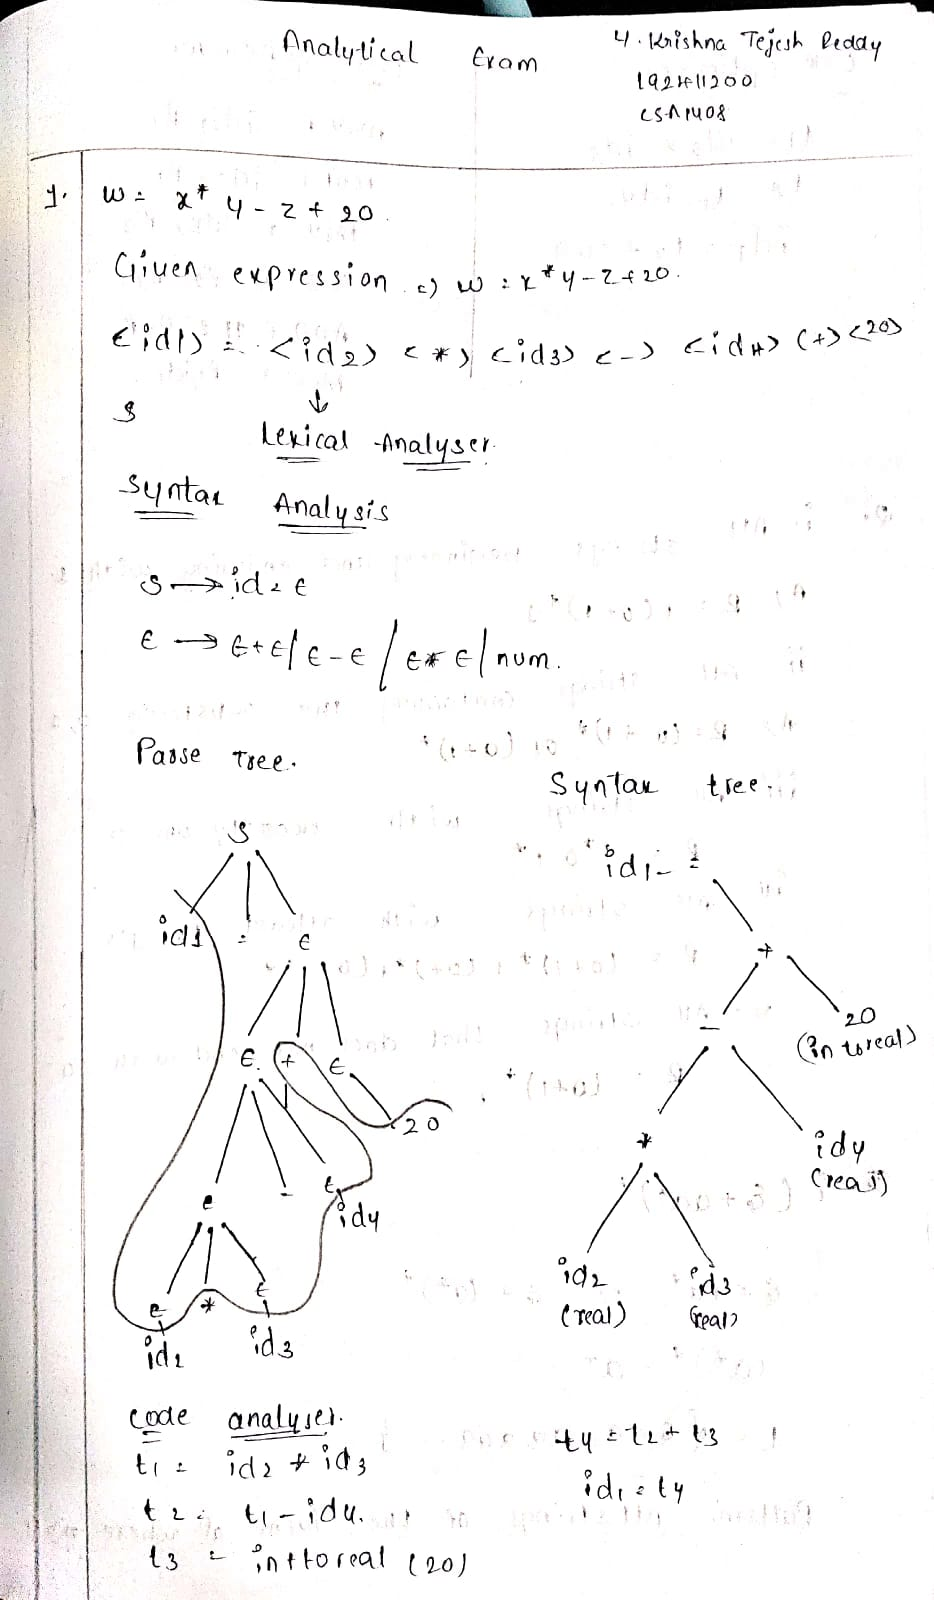 Analytical Exam
Y. Krishna Tejesh Reddy
192411200
CSA1408
1. w = x * y - z + 20.
Given expression => w = x * y - z + 20.
<id1> = <id2> <*> <id3> <-> <id4> <+> <20>
↓
Lexical Analyser.
Syntax Analysis
S → id = E
E → E+E / E-E / E*E / num.
Parse Tree.
S
id1 = E
E + E
20
E - E
id4
E * E
id2 id3
Syntax tree.
id1 =
+
- 20
(intoreal)
* id4
(real)
id2 id3
(real) (real)
code analyser.
t1 = id2 * id3
t2 = t1 - id4.
t3 = inttoreal (20)
t4 = t2 + t3
id1 = t4